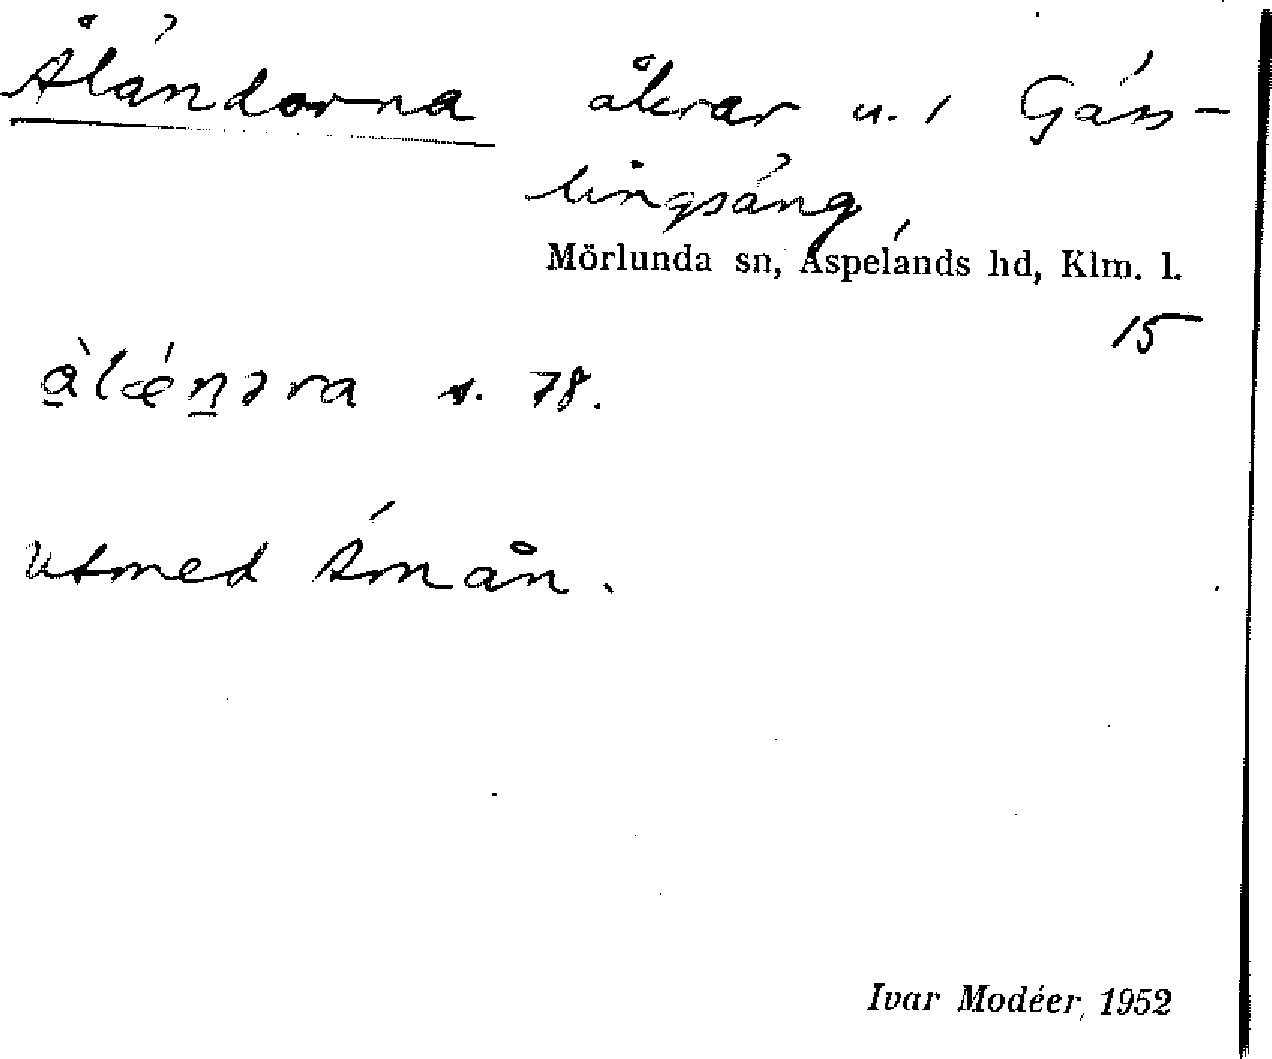 Åländorna åkrar u. / Gäss-
lingsäng,
Mörlunda sn, Aspelands hd, Klm. l.
15
s. 78.
Utmed Emån.
Ivar Modéer, 1952